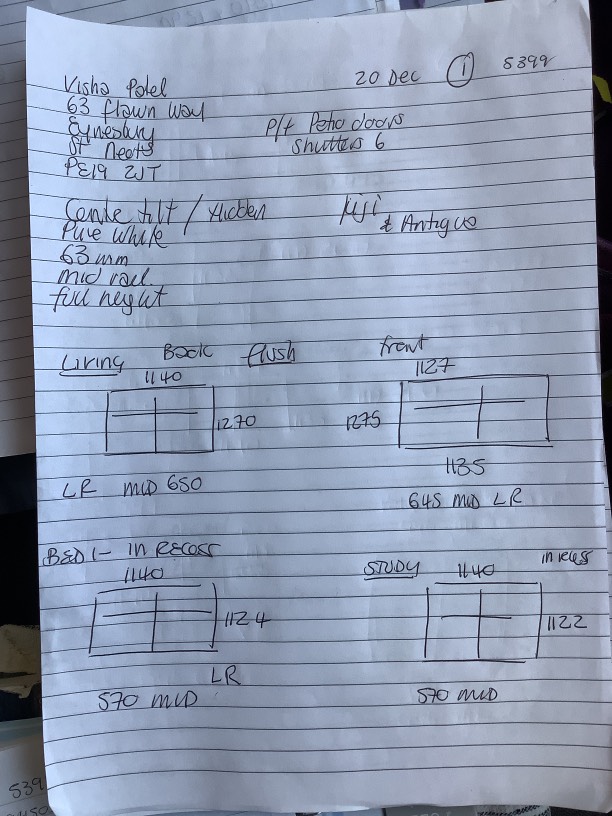 20 Dec ① 5399
Visha Patel
63 flawn way
Eynesbury
St Neots
PE19 2JT
P/f Patio doors
Shutters 6
Centre tilt / Hidden
Fiji & Antigua
Pure White
63 mm
mid rail
full height
Living Back flush
1140
1270
LR MID 650
front
1127
1275
1135
645 MID LR
BED 1 - IN RECESS
1140
1124
LR
570 MID
STUDY
1140
in recess
1122
570 MID
539